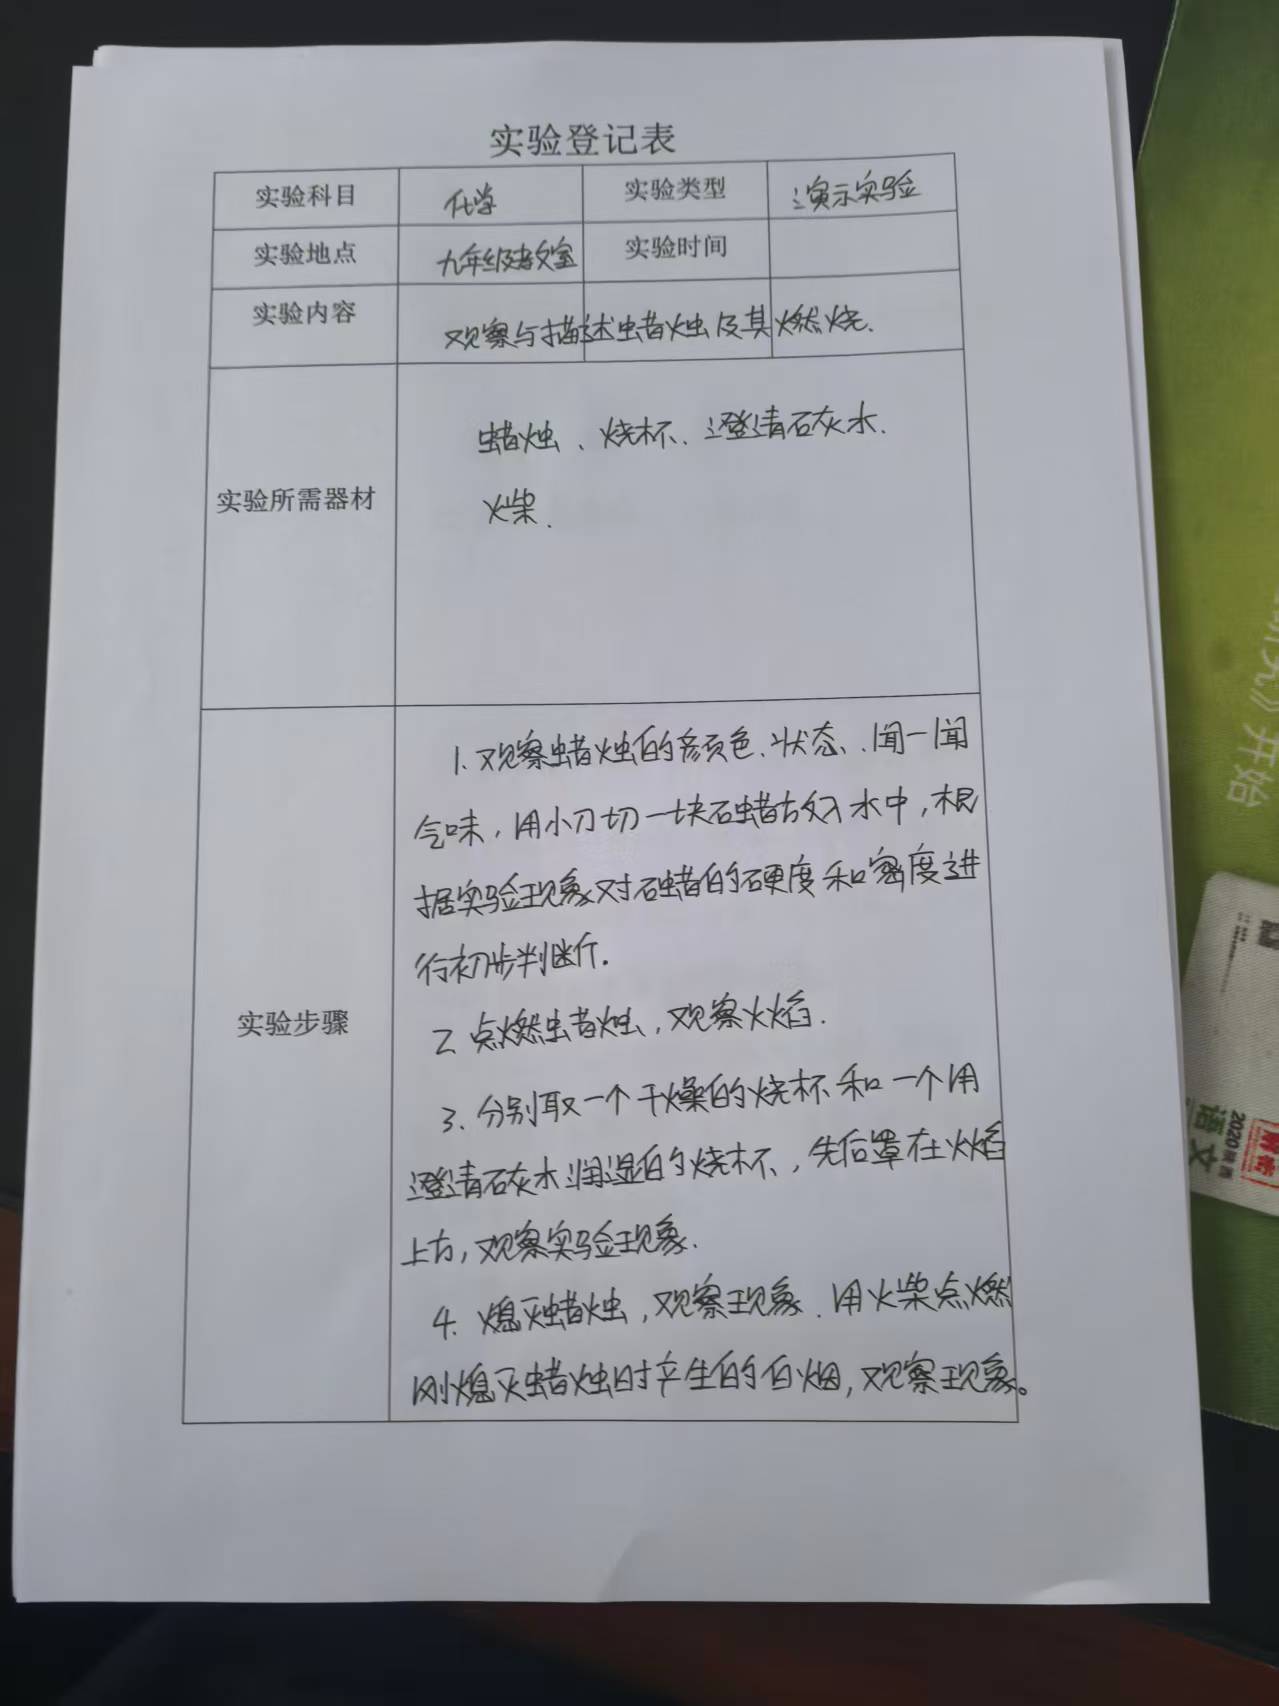 实验登记表
实验科目 化学 实验类型 演示实验
实验地点 九年级教室 实验时间
实验内容 观察与描述蜡烛及其燃烧.
蜡烛、烧杯、澄清石灰水.
实验所需器材
火柴.
1.观察蜡烛的颜色、状态、闻一闻
气味,用小刀切一块石蜡放入水中,根
据实验现象对石蜡的硬度和密度进
行初步判断.
实验步骤
2.点燃蜡烛,观察火焰.
3.分别取一个干燥的烧杯和一个用
澄清石灰水润湿的烧杯,先后罩在火焰
上方,观察实验现象.
4.熄灭蜡烛,观察现象.用火柴点燃
刚熄灭蜡烛时产生的白烟,观察现象。
》开始
2020
语文